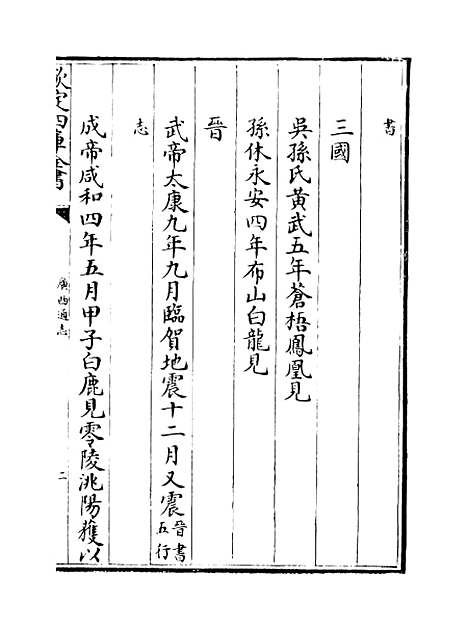 書
三國
吳孫氏黃武五年蒼梧鳳凰見
孫休永安四年布山白龍見
晉
武帝太康九年九月臨賀地震十二月又震晉書五行
志
成帝咸和四年五月甲子白鹿見零陵洮陽獲以
欽定四庫全書
廣西通志
二